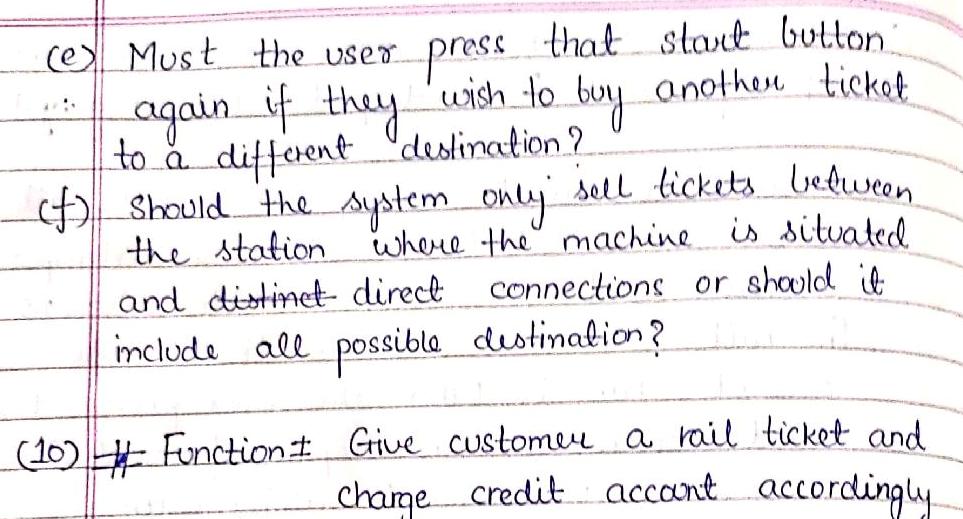 (e) Must the user press that start button
again if they wish to buy another ticket
to a different destination?
(f) Should the system only sell tickets between
the station where the machine is situated
and distinct direct connections or should it
include all possible destination?
(10) # Function: Give customer a rail ticket and
charge credit accont accordingly